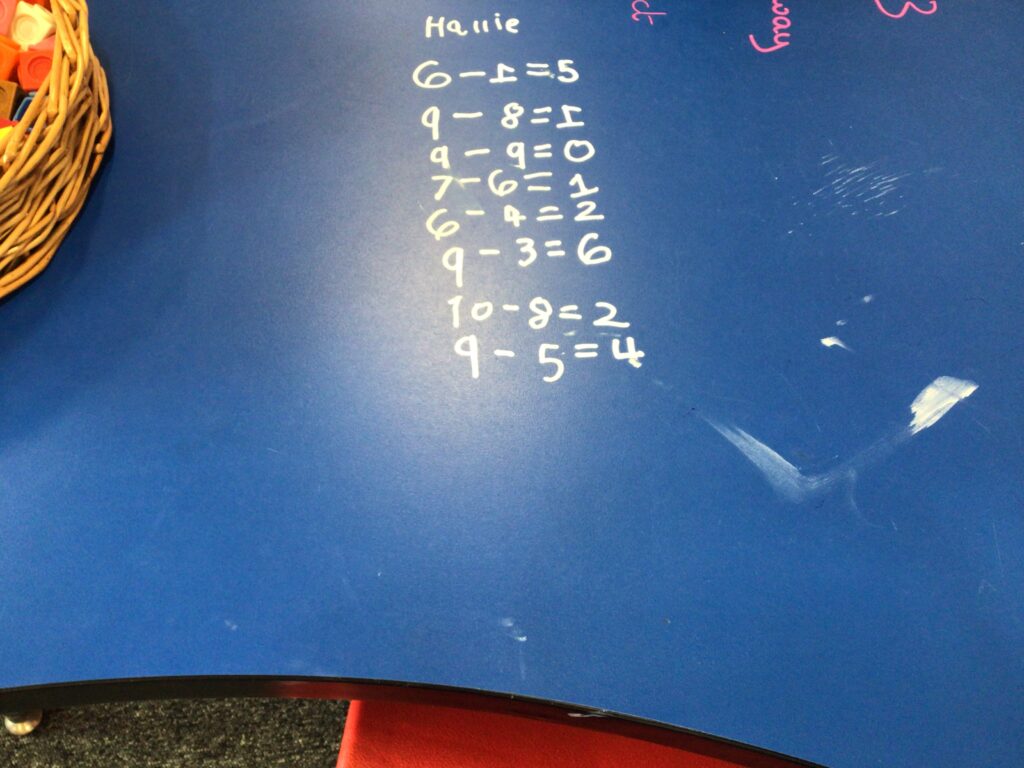 Hallie
6 - 1 = 5
9 - 8 = 1
9 - 9 = 0
7 - 6 = 1
6 - 4 = 2
9 - 3 = 6
10 - 8 = 2
9 - 5 = 4
way
3